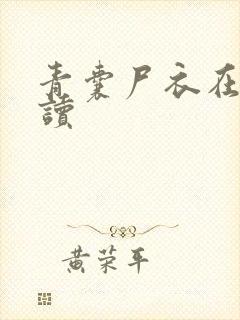 青囊尸衣在
讀
黄荣平